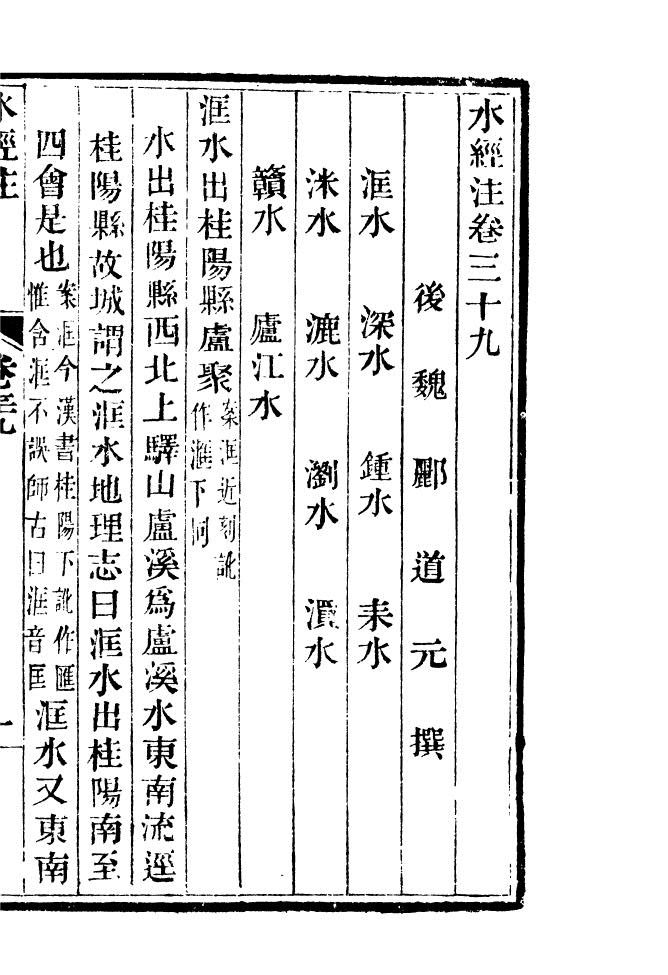 水經注卷三十九
後魏酈道元撰
洭水 深水 鍾水 耒水
洣水 漉水 瀏水 㵋水
贛水 廬江水
洭水出桂陽縣盧聚案洭近刻訛作滙下同
水出桂陽縣西北上驛山盧溪爲盧溪水東南流逕
桂陽縣故城謂之洭水地理志曰洭水出桂陽南至
四會是也案洭今漢書桂陽下訛作匯惟含洭不誤師古曰洭音匡洭水又東南
水經注 卷三十九 一